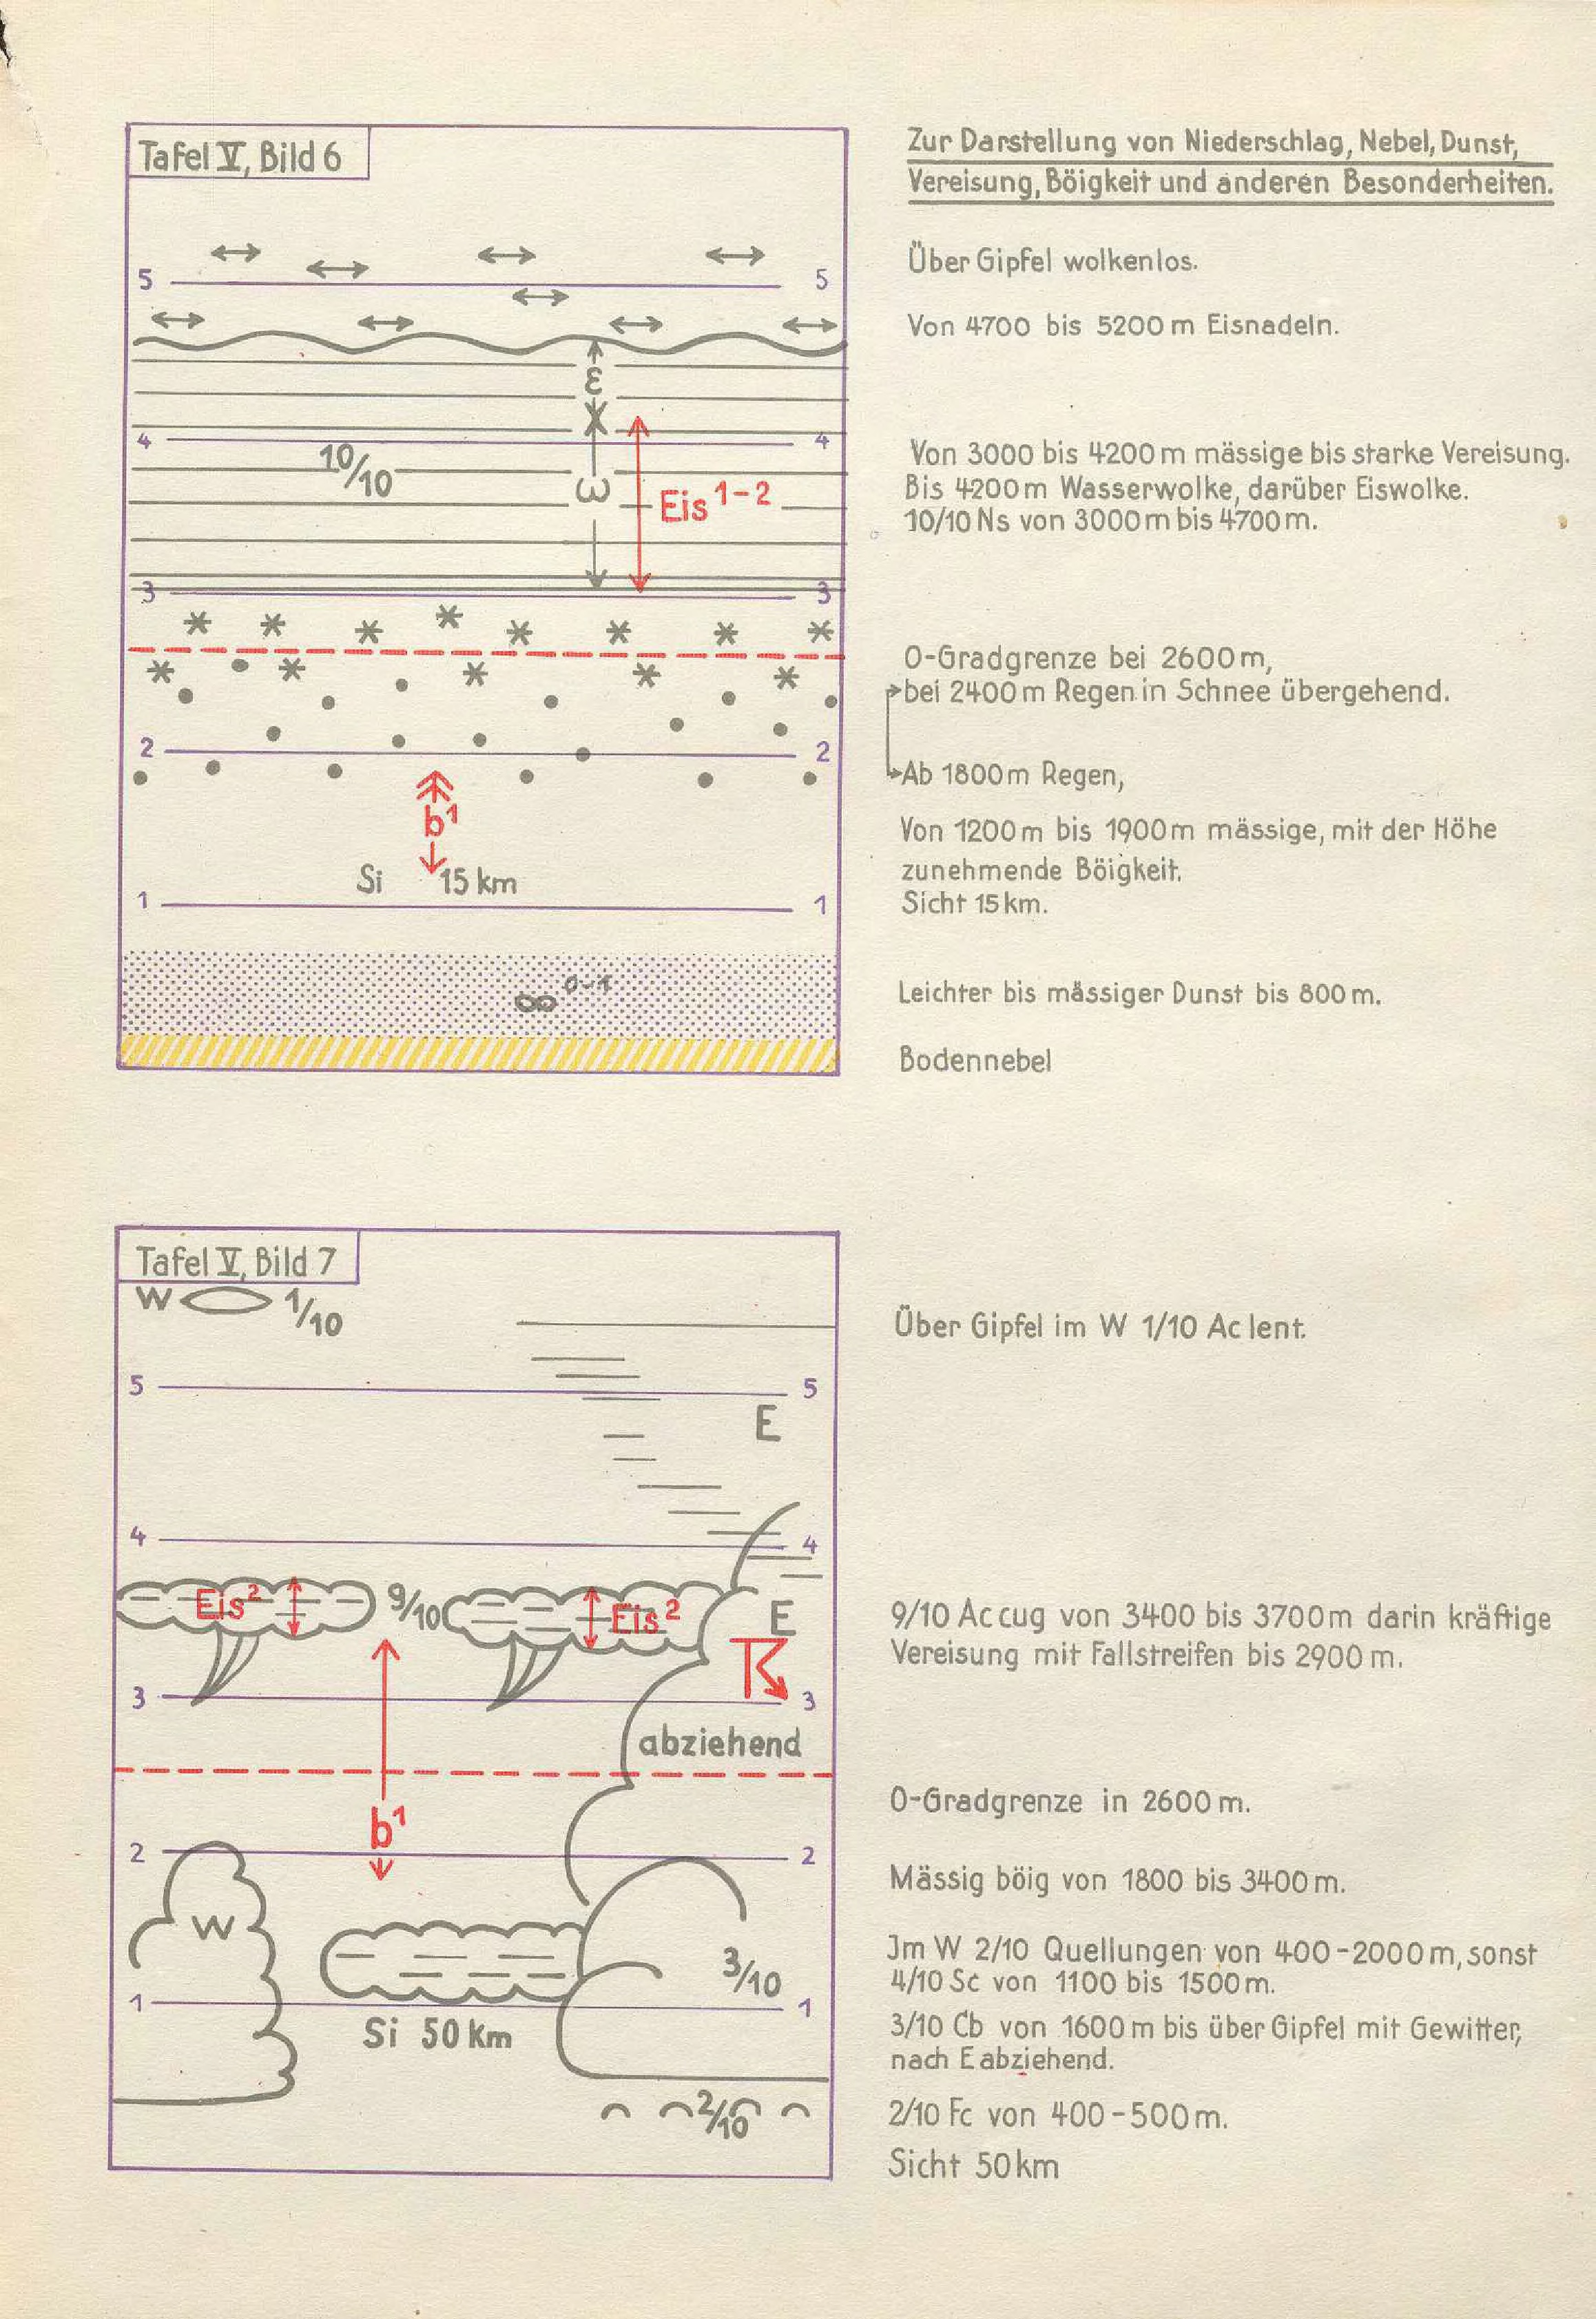 Tafel V, Bild 6
Zur Darstellung von Niederschlag, Nebel, Dunst,
Vereisung, Böigkeit und anderen Besonderheiten.
Über Gipfel wolkenlos.
5 5
Von 4700 bis 5200 m Eisnadeln.
ε
4 4
10/10
ω
Eis 1-2
Von 3000 bis 4200 m mässige bis starke Vereisung.
Bis 4200 m Wasserwolke, darüber Eiswolke.
10/10 Ns von 3000 m bis 4700 m.
3 3
0-Gradgrenze bei 2600 m,
bei 2400 m Regen in Schnee übergehend.
2 2
Ab 1800 m Regen,
b1
Von 1200 m bis 1900 m mässige, mit der Höhe
zunehmende Böigkeit.
Si 15 km
Sicht 15 km.
1 1
∞ 0-1
Leichter bis mässiger Dunst bis 800 m.
Bodennebel
Tafel V, Bild 7
W 1/10
Über Gipfel im W 1/10 Ac lent.
5 5
E
4 4
Eis2 9/10 Eis2 E
9/10 Ac cug von 3400 bis 3700 m darin kräftige
Vereisung mit Fallstreifen bis 2900 m.
3 3
abziehend
0-Gradgrenze in 2600 m.
b1
2 2
Mässig böig von 1800 bis 3400 m.
W
3/10
Jm W 2/10 Quellungen von 400-2000 m, sonst
4/10 Sc von 1100 bis 1500 m.
1 1
Si 50 km
3/10 Cb von 1600 m bis über Gipfel mit Gewitter,
nach E abziehend.
2/10
2/10 Fc von 400-500 m.
Sicht 50 km